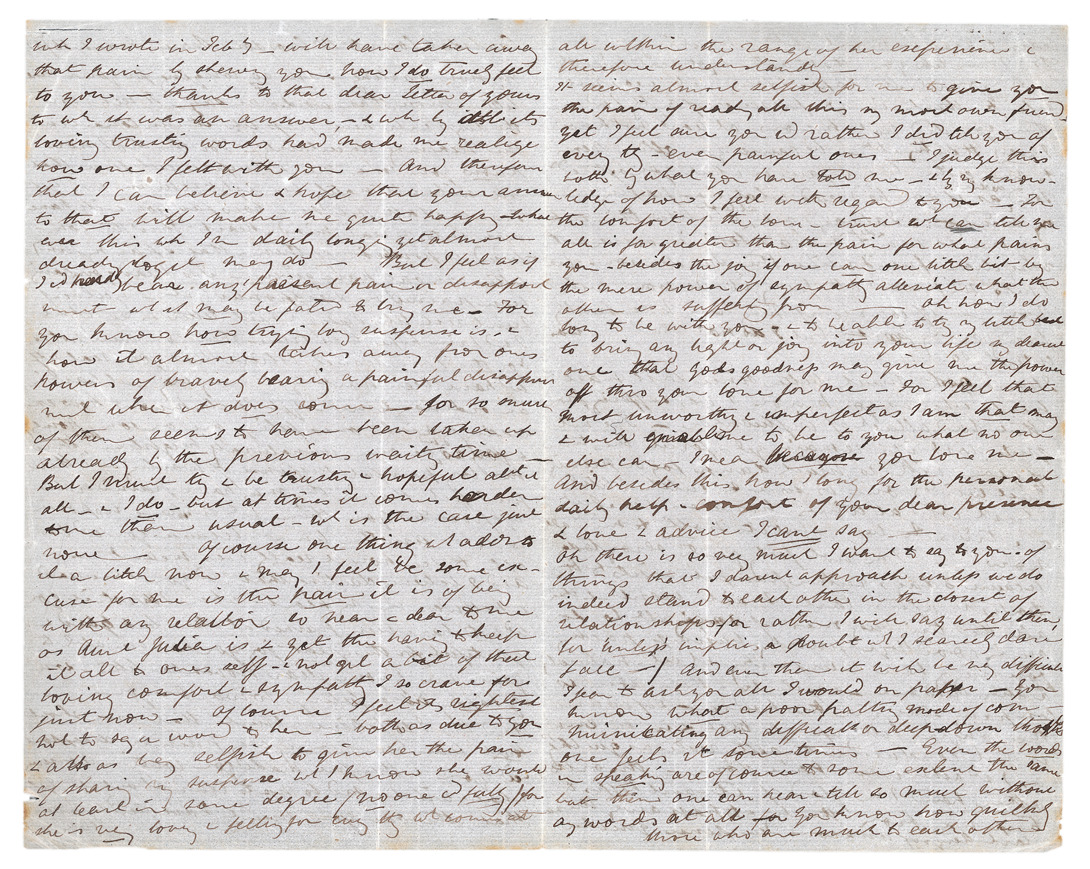 wh I wrote in Feby – will have taken away
that pain by shewing you how I do truly feel
to you – thanks to that dear letter of yours
to wh it was an answer – & wh by all its
loving trusting words had made me realize
how one I felt with you – And therefore
that I can believe & hope that your answer
to that will make me quite happy – what
ever this wh I'm daily longing yet almost
dreading to get may do – But I feel as if
I cd bear any present pain or disappoint
ment wh it may be fated to bring me – For
you know how trying long suspense is, &
how it almost takes away from ones
powers of bravely bearing a painful disappoint
ment when it does come – for so much
of them seems to have been taken up
already by the previous waiting time –
But I must try & be trusting & hopeful abt it
all – & I do – but at times it comes harder
to me than usual – wh is the case just
now – of course one thing wh adds to
it a little now & may I feel be some ex-
cuse for me is the pain it is of being
with any relation so near & dear to me
as Aunt Julia is & yet the having to keep
it all to ones self – & not get a bit of that
loving comfort & sympathy I so crave for
just now – of course I feel its rightest
not to say a word to her – both as due to you
& also as very selfish to give her the pain
of sharing my suspense wh I know she would
at least in some degree (no one cd fully) for
she is very loving & feeling for every thing wh comes at
all within the range of her experience &
therefore understands –
It seems almost selfish for me to give you
the pain of reading all this my most own friend,
yet I feel sure you wd rather I did tell you of
every thg – even painful ones – I judge this
both by what you have told me – & by my know-
ledge of how I feel with regard to you – For
the comfort of the love – trust wh can tell you
all is far greater than the pain for what pains
you – besides the joy if one can one little bit by
the mere power of sympathy alleviate what the
other is suffering from – oh how I do
long to be with you – & to be able to try my little best
to bring any light or joy into your life my dearest
one that gods goodness may give me the power
of thro your love for me – For I feel that
most unworthy & imperfect as I am that may
& will enable me to be to you what no one
else can. I mean because you love me –
And besides this how I long for the personal
daily help – comfort of your dear presence
& love & advice I cant say –
Oh there is so very much I want to say to you – of
things that I darent approach unless we do
indeed stand to each other in the closest of
relationships, for rather I will say until then,
for unless implies a doubt wh I scarcely dare
face –) And even then it will be very difficult
I fear to ask you all I would on paper – You
know what a poor paltry mode of com-
municating any difficult or deep down thoughts
one feels it sometimes – Even the words
in speaking are of course to some extent the same
but then one can hear tell so much without
any words at all – for you know how quickly
those who are much to each other